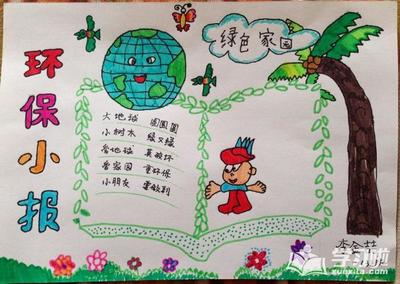 环保小报
绿色家园
大地球 圆圆圆
小树木 绿又绿
爱地球 莫破坏
爱家园 重环保
小朋友 要做到
学习啦
xuexila.com